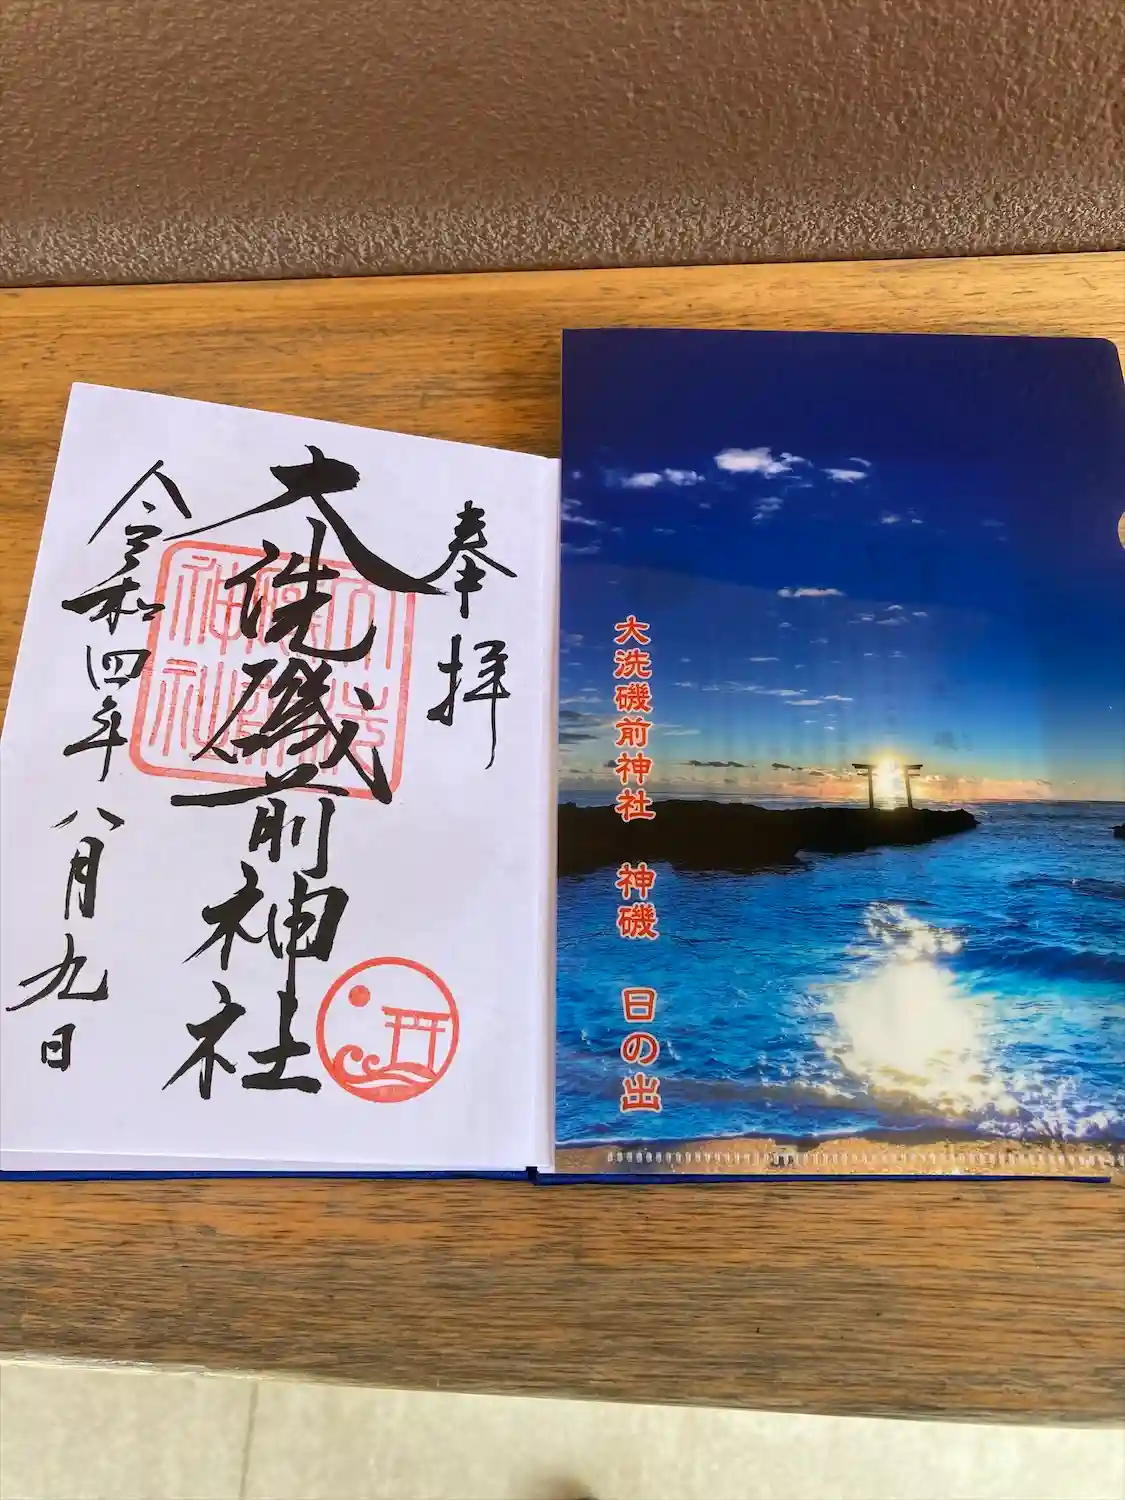 奉拝
大洗磯前神社
令和四年八月九日
大洗磯前神社 神磯 日の出